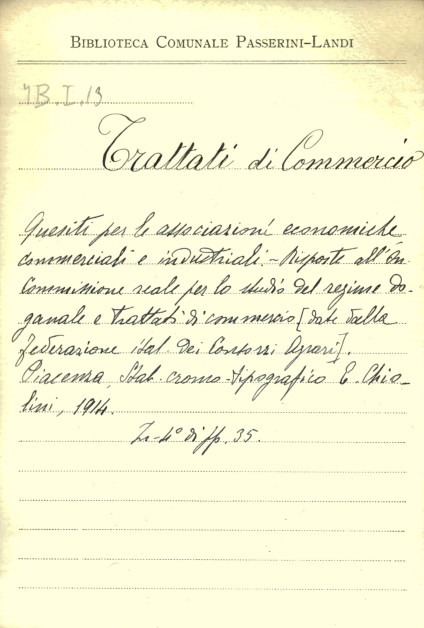 BIBLIOTECA COMUNALE PASSERINI-LANDI
4B.I.19
Trattati di Commercio
Quesiti per le associazioni economiche
commerciali e industriali. - Risposte all'On.
Commissione reale per lo studio del regime do-
ganale e trattati di commercio [date dalla
Federazione ital. dei Consorzi Agrari].
Piacenza, Stab. cromo-tipografico E. Chio-
lini, 1914.
In-4° di pp. 35.